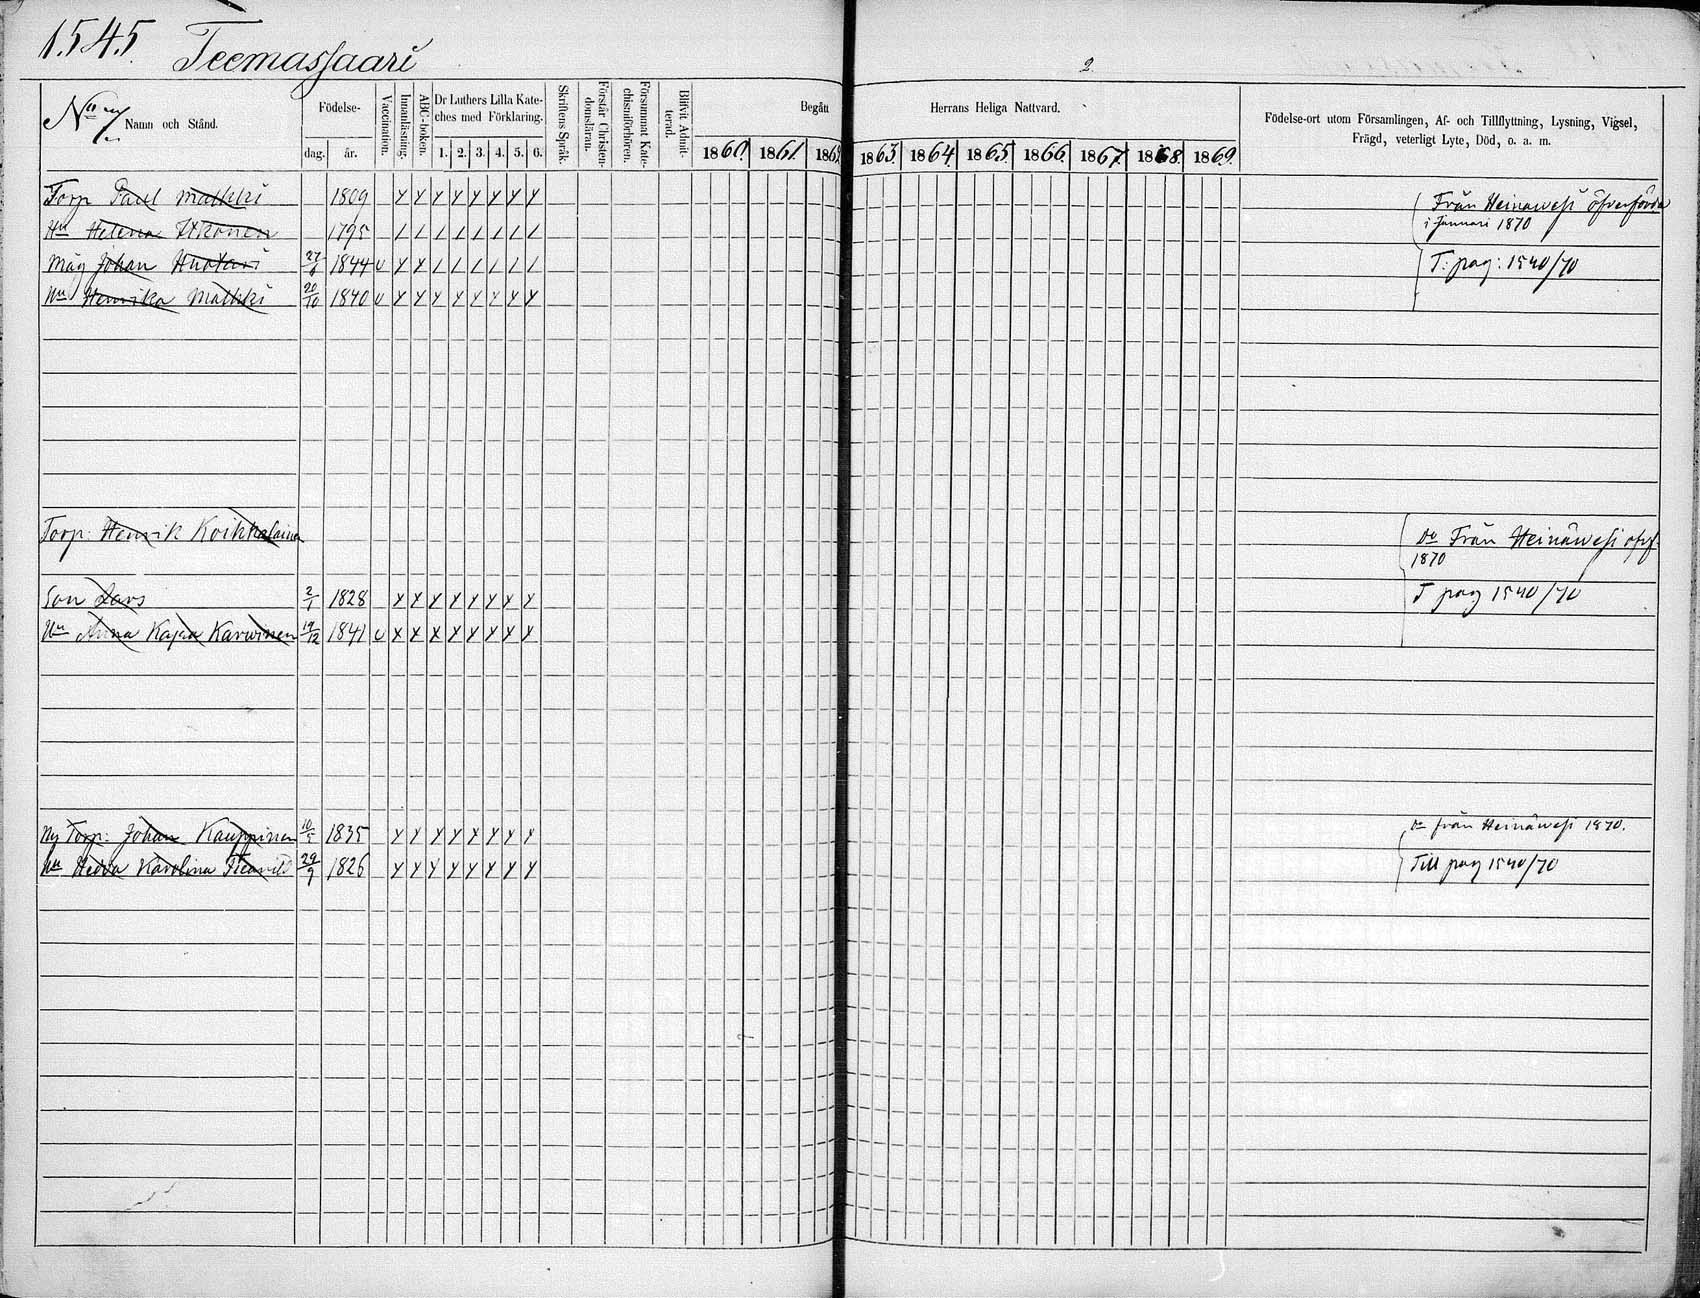 1545. Teemassaari
2
No 7
Namn och Stånd.
Födelse-
dag. år.
Vaccination.
Innanläsning.
ABC-boken.
Dr Luthers Lilla Kate-
ches med Förklaring.
1. 2. 3. 4. 5. 6.
Skriftens Språk.
Förstår Christen-
domsläran.
Försummat Kate-
chismiförhören.
Blifvit Admit-
terad.
Begått
Herrans Heliga Nattvard.
1860. 1861. 1862. 1863. 1864. 1865. 1866. 1867. 1868. 1869.
Födelse-ort utom Församlingen, Af- och Tillflyttning, Lysning, Vigsel,
Frägd, veterligt Lyte, Död, o. a. m.
Torp Paul Malkki 1809 x x x x x x x x Från Heinäwesi öfverförda
i Januari 1870
Hu Helena Ikonen 1795 / / / / / / / /
Måg Johan Huotari 27/6 1844 v x x / / / / / / T. pag: 1540/70
Hu Henrika Malkki 20/10 1840 v x x x x x x x x
Torp: Henrik Koikkalainen Do Från Heinäwesi öfvf
1870
Son Lars 2/1 1828 x x x x x x x x T pag 1540/70
Hu Anna Kajsa Karwinen 19/12 1841 v x x x x x x x x
Ny Torp: Johan Kauppinen 10/5 1835 x x x x x x x x Do från Heinäwesi 1870.
Hu Hedda Karolina 29/9 1826 x x x x x x x x Till pag 1540/70